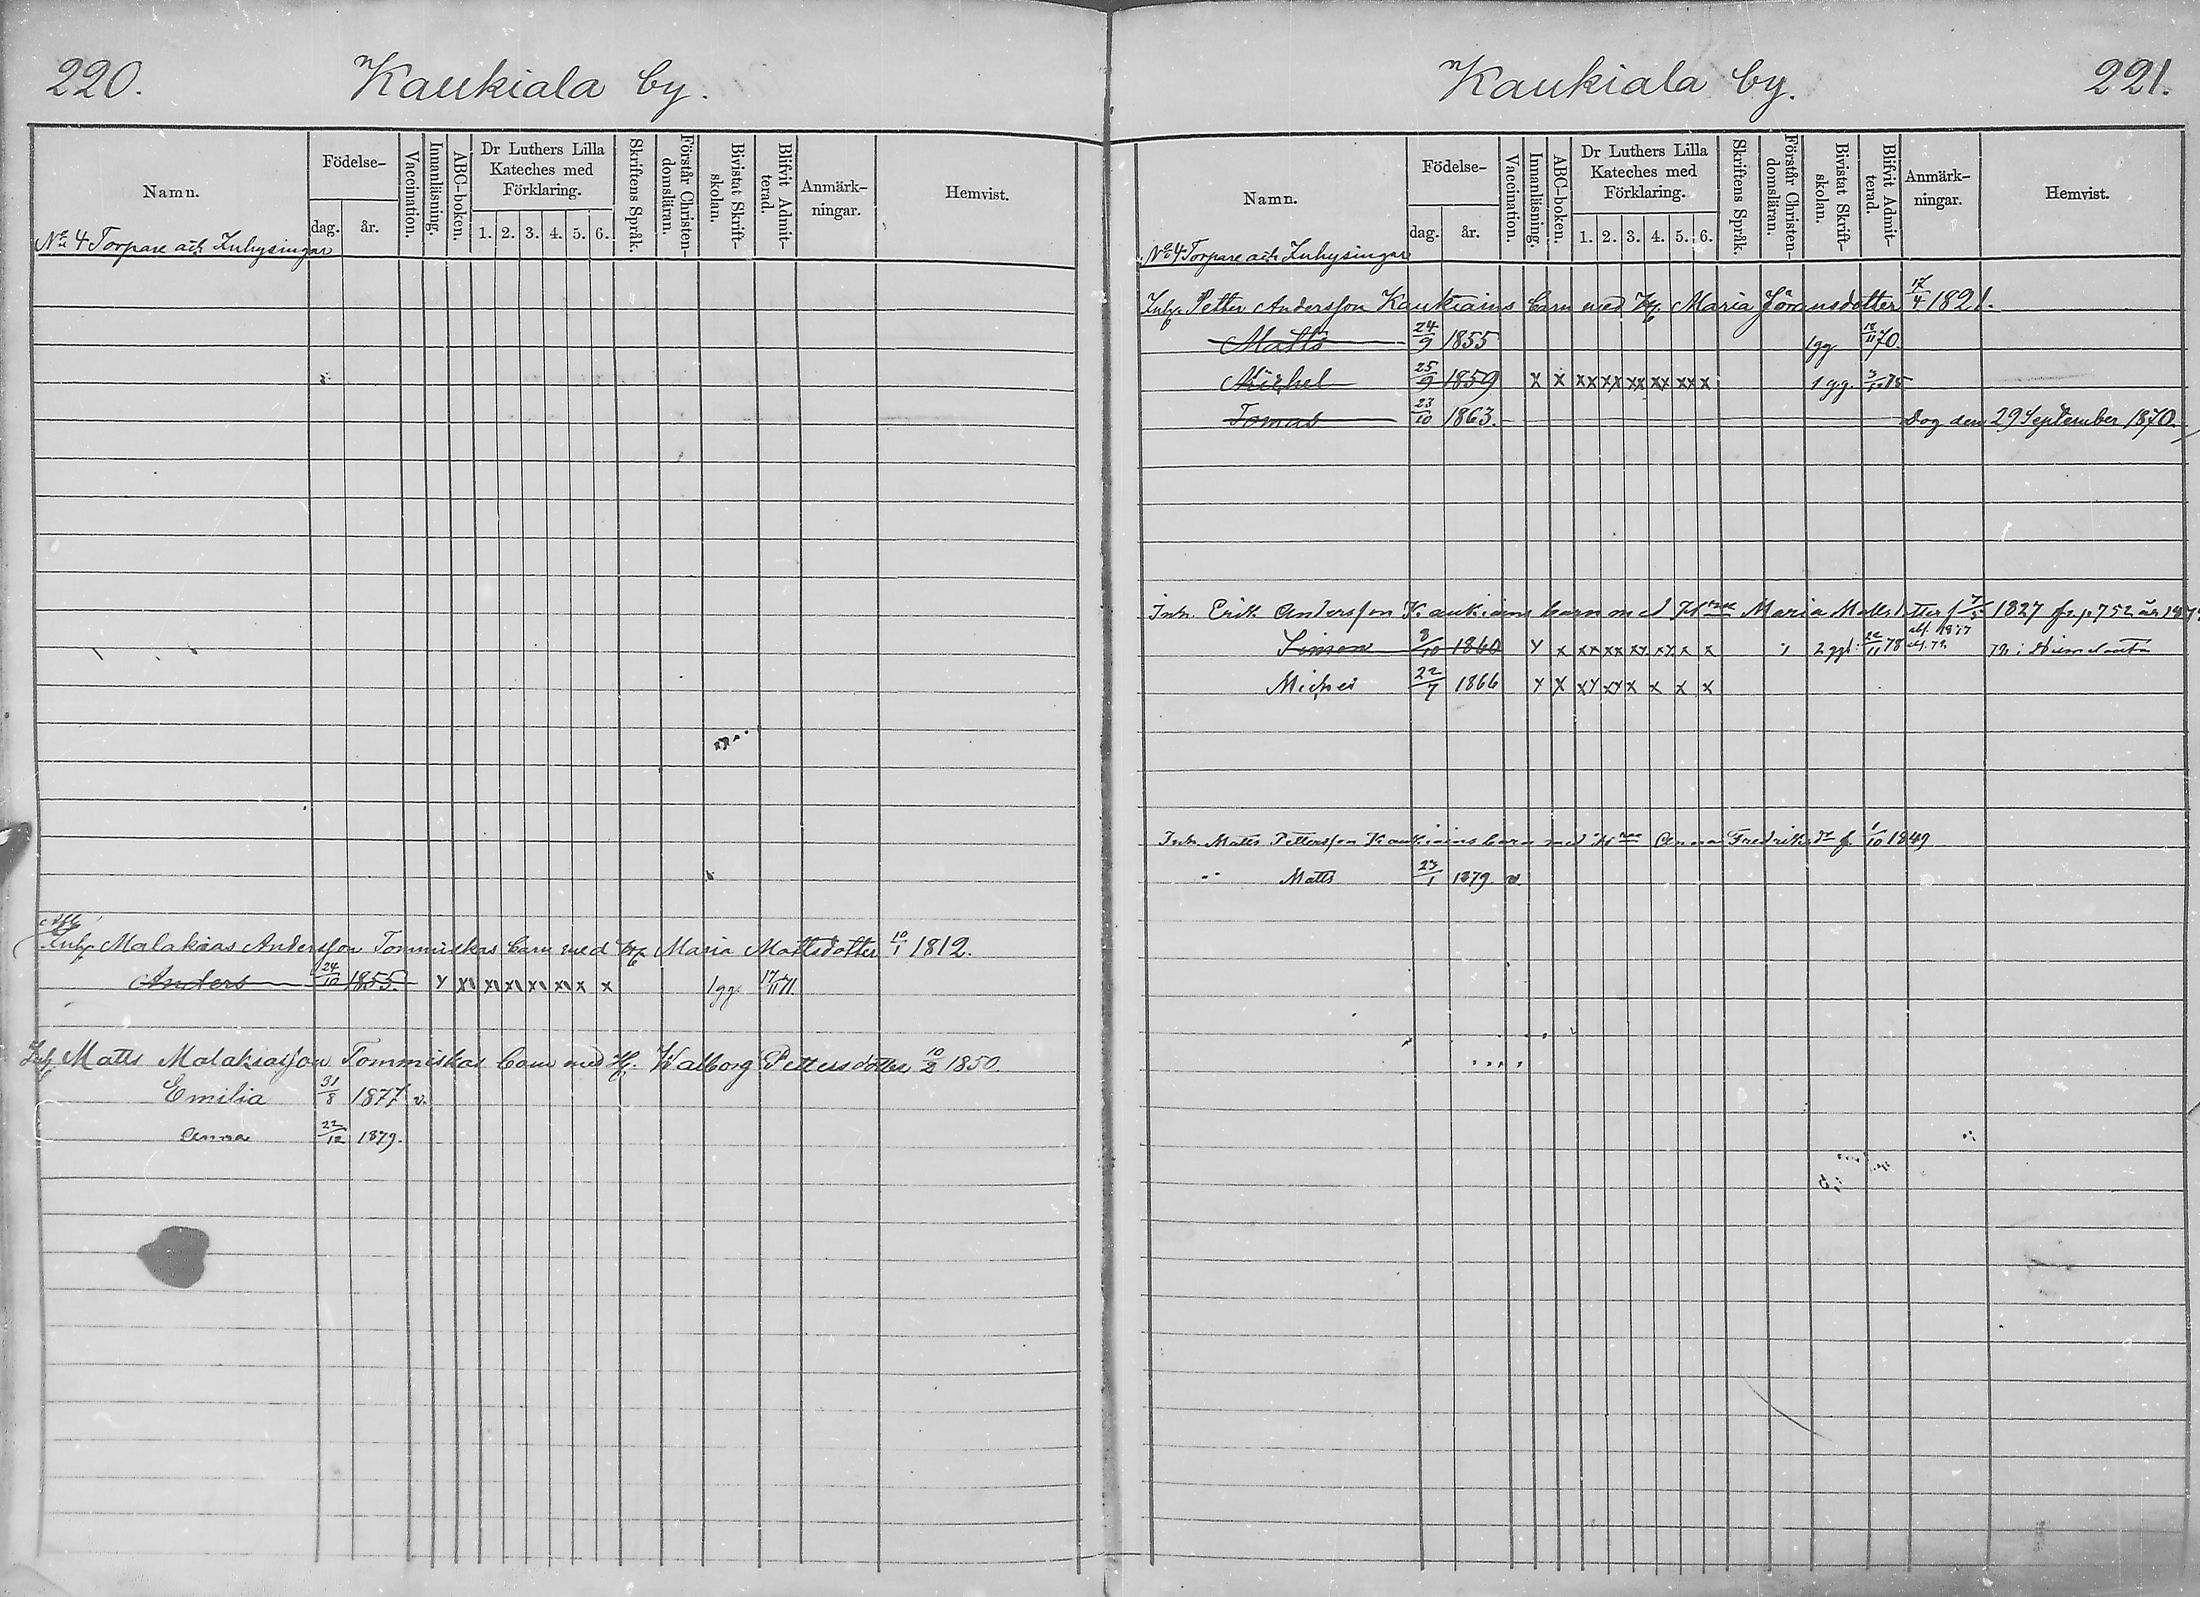 220.
Kaukiala by.
Namn.
Födelse-
dag.
år.
Vaccination.
Innanläsning.
ABC-boken.
Dr Luthers Lilla
Kateches med
Förklaring.
1. 2. 3. 4. 5. 6.
Skriftens Språk.
Förstår Christen-
domsläran.
Bivistat Skrift-
skolan.
Blifvit Admit-
terad.
Anmärk-
ningar.
Hemvist.
No 4 Torpare och Inhysingar
Afl.
Inh. Malakias Andersson Tommiskas barn med H. Maria Mattsdotter 10/1 1812.
Anders 24/10 1855. x xx xx xx xx xx x x 1 gg. 17/11 71.
Inh. Matts Malakiasson Tommiskas barn med H. Walborg Pettersdotter 10/2 1850.
Emilia 31/8 1877 v.
Anna 22/12 1879.
Kaukiala by.
221.
Namn.
Födelse-
dag.
år.
Vaccination.
Innanläsning.
ABC-boken.
Dr Luthers Lilla
Kateches med
Förklaring.
1. 2. 3. 4. 5. 6.
Skriftens Språk.
Förstår Christen-
domsläran.
Bivistat Skrift-
skolan.
Blifvit Admit-
terad.
Anmärk-
ningar.
Hemvist.
No 4 Torpare och Inhysingar
Inh. Petter Andersson Kaukiains barn med H. Maria Göransdotter 17/4 1821.
Matts 24/9 1855 1 gg 18/11 70.
Michel 25/9 1859 x x xx xx xx xx xx x 1 gg. 75
Tomas 23/10 1863. Dog den 29 September 1870.
Inh. Erik Andersson Kaukiains barn med Maria Matts 1827
Simon 8/10 1860 x x xx xx xx xx x x 2 22/11 78
Michel 22/7 1866 x x xx xx x x x x
Inh. Matts Pettersson Kaukiains barn med Anna Fredriks dr f. 1/10 1849
Matts 23/1 1879. v.